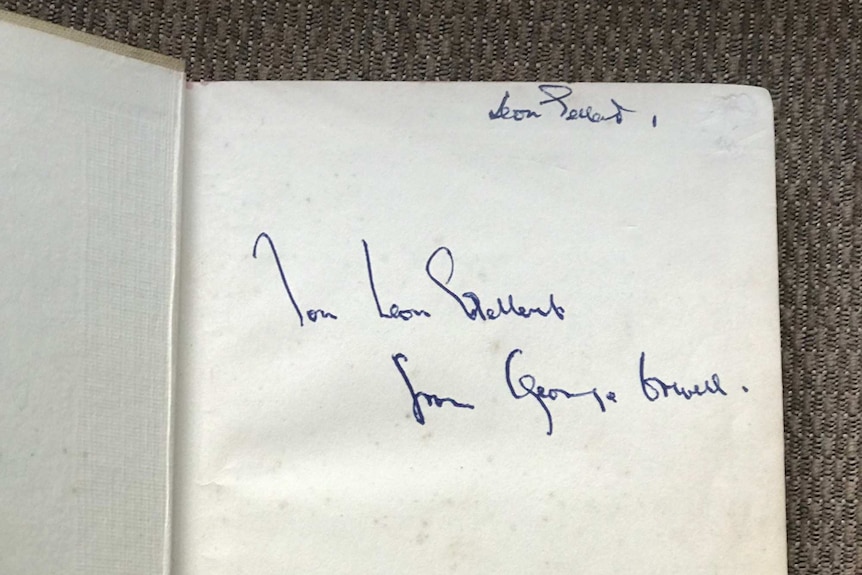 Leon Gellert,
for Leon Gellert
from George Orwell.